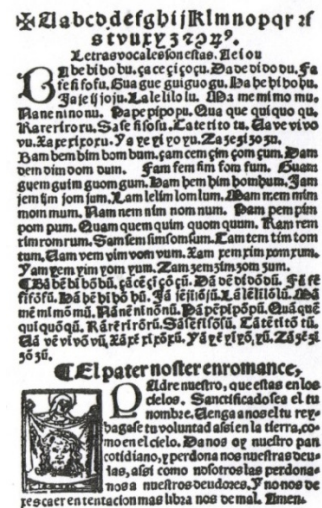 ✠ A a b c d d e f g h i j k l m n o p q r ꝛ ſ
s t v u x y ȝ
Letras vocales son estas. A e i o u
Ba be bi bo bu. ça ce çi ço çu. Da de di do du. Fa
fe fi fo fu. Gua gue gui guo gu. Ha he bi bo hu.
Ja je ji jo ju. La le li lo lu. Ma me mi mo mu.
Na ne ni no nu. Pa pe pi po pu. Qua que qui quo qu.
Ra re ri ro ru. Sa se si so su. Ca te ti to tu. Ua ve vi vo
vu. Xa xe xi xo xu. Ya ye yi yo yu. Za ze zi zo zu.
Bam bem bim bom bum. çam cem çim çom çum. Dam
dem dim dom dum. Fam fem fim fom fum. Guam
guem guim guom gum. Ham hem him hom hum. Jam
jem jim jom jum. Lam lem lim lom lum. Mam mem mim
mom mum. Nam nem nim nom num. Pam pem pim
pom pum. Quam quem quim quom quum. Ram rem
rim rom rum. Sam sem sim som sum. Tam tem tim tom
tum. Uam vem vim vom vum. Xam xem xim xom xum.
Yam yem yim yom yum. Zam zem zim zom zum.
¶ Bā bē bī bō bū. çā cē çī çō çū. Dā dē dī dō dū. Fā fē
fī fō fū. Hā hē hī hō hū. Jā jē jī jō jū. Lā lē lī lō lū. Mā
mē mī mō mū. Nā nē nī nō nū. Pā pē pī pō pū. Quā quē
quī quō qū. Rā rē rī rō rū. Sā sē sī sō sū. Tā tē tī tō tū.
Uā vē vī vō vū. Xā xē xī xō xū. Yā yē yī yō, yū. Zā zē zī
zō zū.
¶ El pater noster en romance,
PAdre nuestro, que estas en los
cielos. Sanctificado sea el tu
nombre. Uenga a nos el tu rey
hagase tu voluntad assi en la tierra, co
mo en el cielo. Danos oy nuestro pan
cotidiano, y perdona nos nuestras deu
das, assi como nosotros las perdona
mos a nuestros deudores. Y no nos de
xes caer en tentacion mas libra nos de mal. Amen.